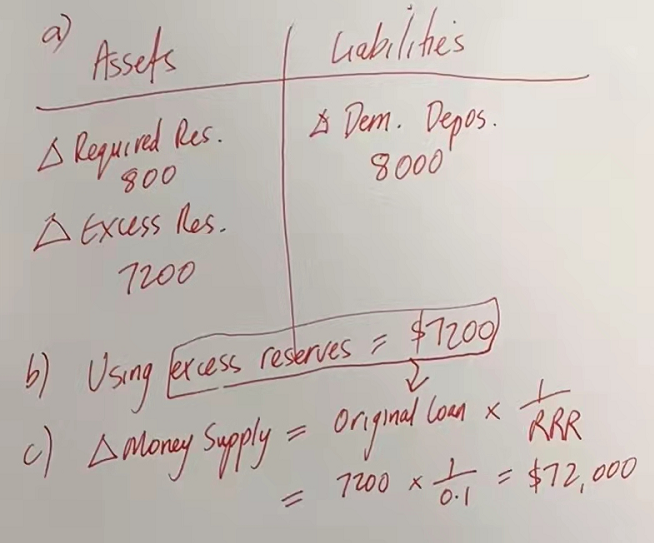 a)
Assets
Liabilities
Δ Required Res.
800
Δ Dem. Depos.
8000
Δ Excess Res.
7200
b) Using excess reserves = $7200
c) Δ Money Supply = Original Loan × 1/RRR
= 7200 × 1/0.1 = $72,000